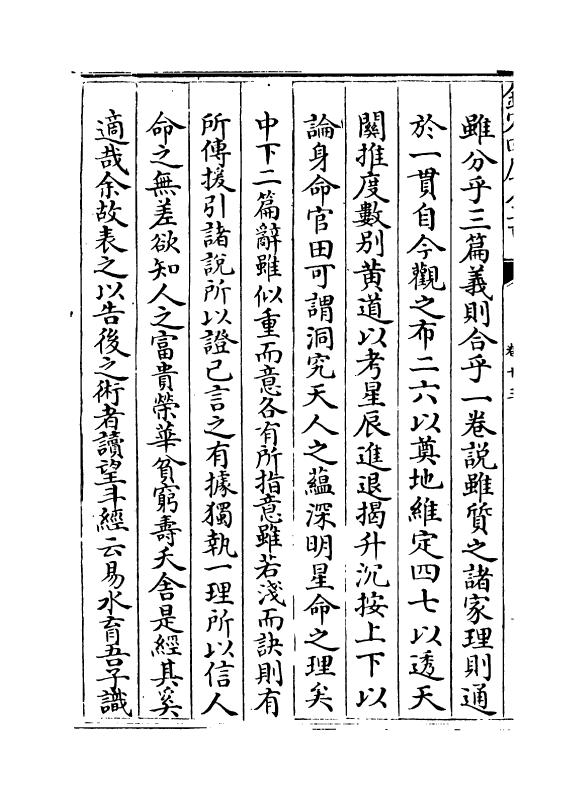 雖分乎三篇義則合乎一卷説雖質之諸家理則通
於一貫自今觀之布二六以奠地維定四七以透天
關推度數别黄道以考星辰進退揭升沉按上下以
論身命官田可謂洞究天人之蘊深明星命之理矣
中下二篇辭雖似重而意各有所指意雖若淺而訣則有
所傳援引諸說所以證已言之有據獨執一理所以信人
命之無差欲知人之富貴榮華貧窮壽夭舍是經其奚
適哉余故表之以告後之術者讀望斗經云易水育吾子識